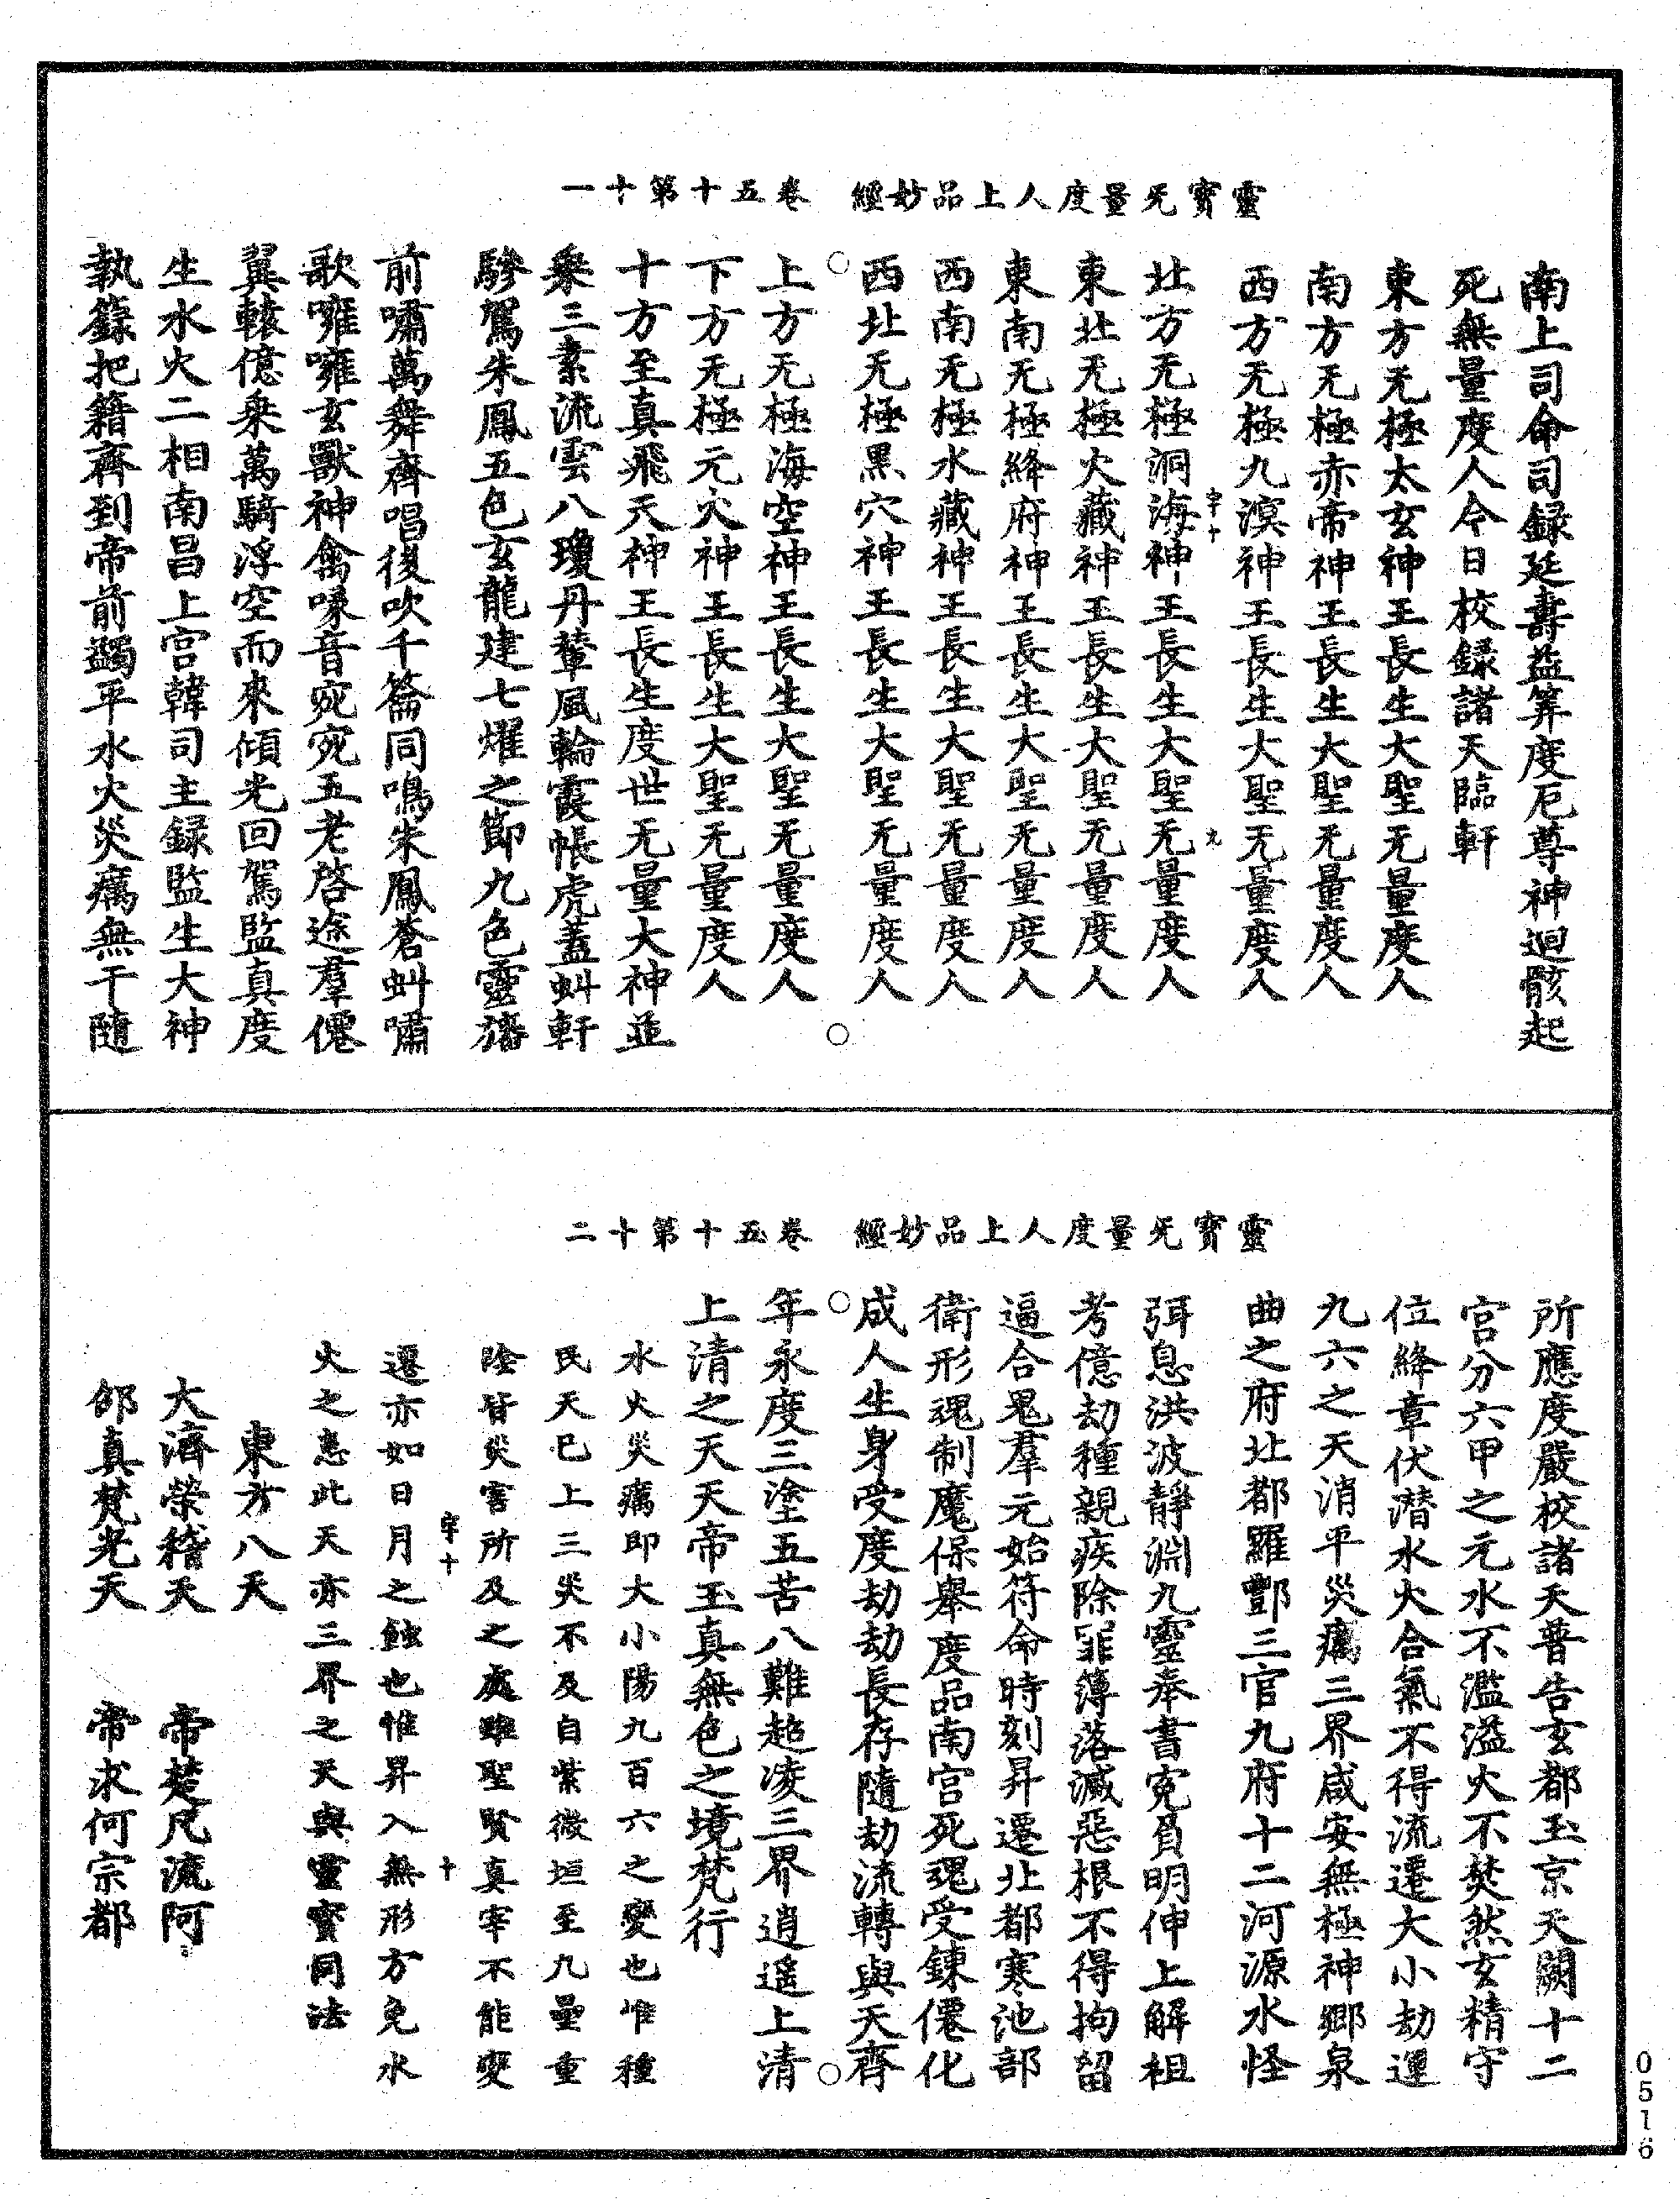 靈寶无量度人上品妙經　卷五十第十一
南上司命司録延壽益筭度厄尊神迴骸起
死無量度人今日校録諸天臨軒
東方无極太玄神王長生大聖无量度人
南方无極赤帝神王長生大聖无量度人
西方无極九溟神王長生大聖无量度人
字十　九
北方无極洞海神王長生大聖无量度人
東北无極火藏神王長生大聖无量度人
東南无極絳府神王長生大聖无量度人
西南无極水藏神王長生大聖无量度人
西北无極黑穴神王長生大聖无量度人
上方无極海空神王長生大聖无量度人
下方无極元火神王長生大聖无量度人
十方至真飛天神王長生度世无量大神並
乗三素流雲八瓊丹輦風輪霞帳虎蓋蚪軒
驂駕朱鳳五色玄龍建七燿之節九色靈旛
前嘯萬舞齊唱後吹千籥同鳴朱鳳蒼蚪嘯
歌噰噰玄獸神禽喙音宛宛五老啓途羣僊
翼轅億乗萬騎浮空而來傾光回駕監真度
生水火二相南昌上宮韓司主録監生大神
執籙把籍齊到帝前蠲平水火災癘無干隨
靈寶无量度人上品妙經　卷五十第十二
所應度嚴校諸天普告玄都玉京天闕十二
宮分六甲之元水不濫溢火不焚然玄精守
位絳章伏潛水火合氣不得流遷大小劫運
九六之天消平災癘三界咸安無極神鄉泉
曲之府北都羅酆三官九府十二河源水怪
弭息洪波靜淵九靈奉書寃負明伸上解祖
考億劫種親疾除罪簿落滅惡根不得拘留
逼合鬼羣元始符命時刻昇遷北都寒池部
衛形魂制魔保舉度品南宮死魂受鍊僊化
成人生身受度劫劫長存隨劫流轉與天齊
年永度三塗五苦八難超凌三界逍遥上清
上清之天天帝玉真無色之境梵行
水火災癘即大小陽九百六之變也惟種
民天已上三災不及自紫微垣至九壘重
陰皆災害所及之處雖聖賢真宰不能變
字十　十
遷亦如日月之蝕也惟昇入無形方免水
火之患此天亦三界之天與靈寶同法
東方八天
大濟榮稽天　帝楚凡流阿
郤真梵光天　帝求何宗都
0516